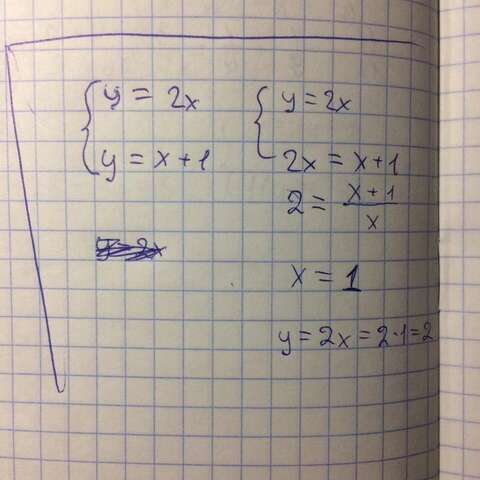 y = 2x
y = x + 1
y = 2x
2x = x + 1
2 = \frac{x + 1}{x}
x = 1
y = 2x = 2 · 1 = 2